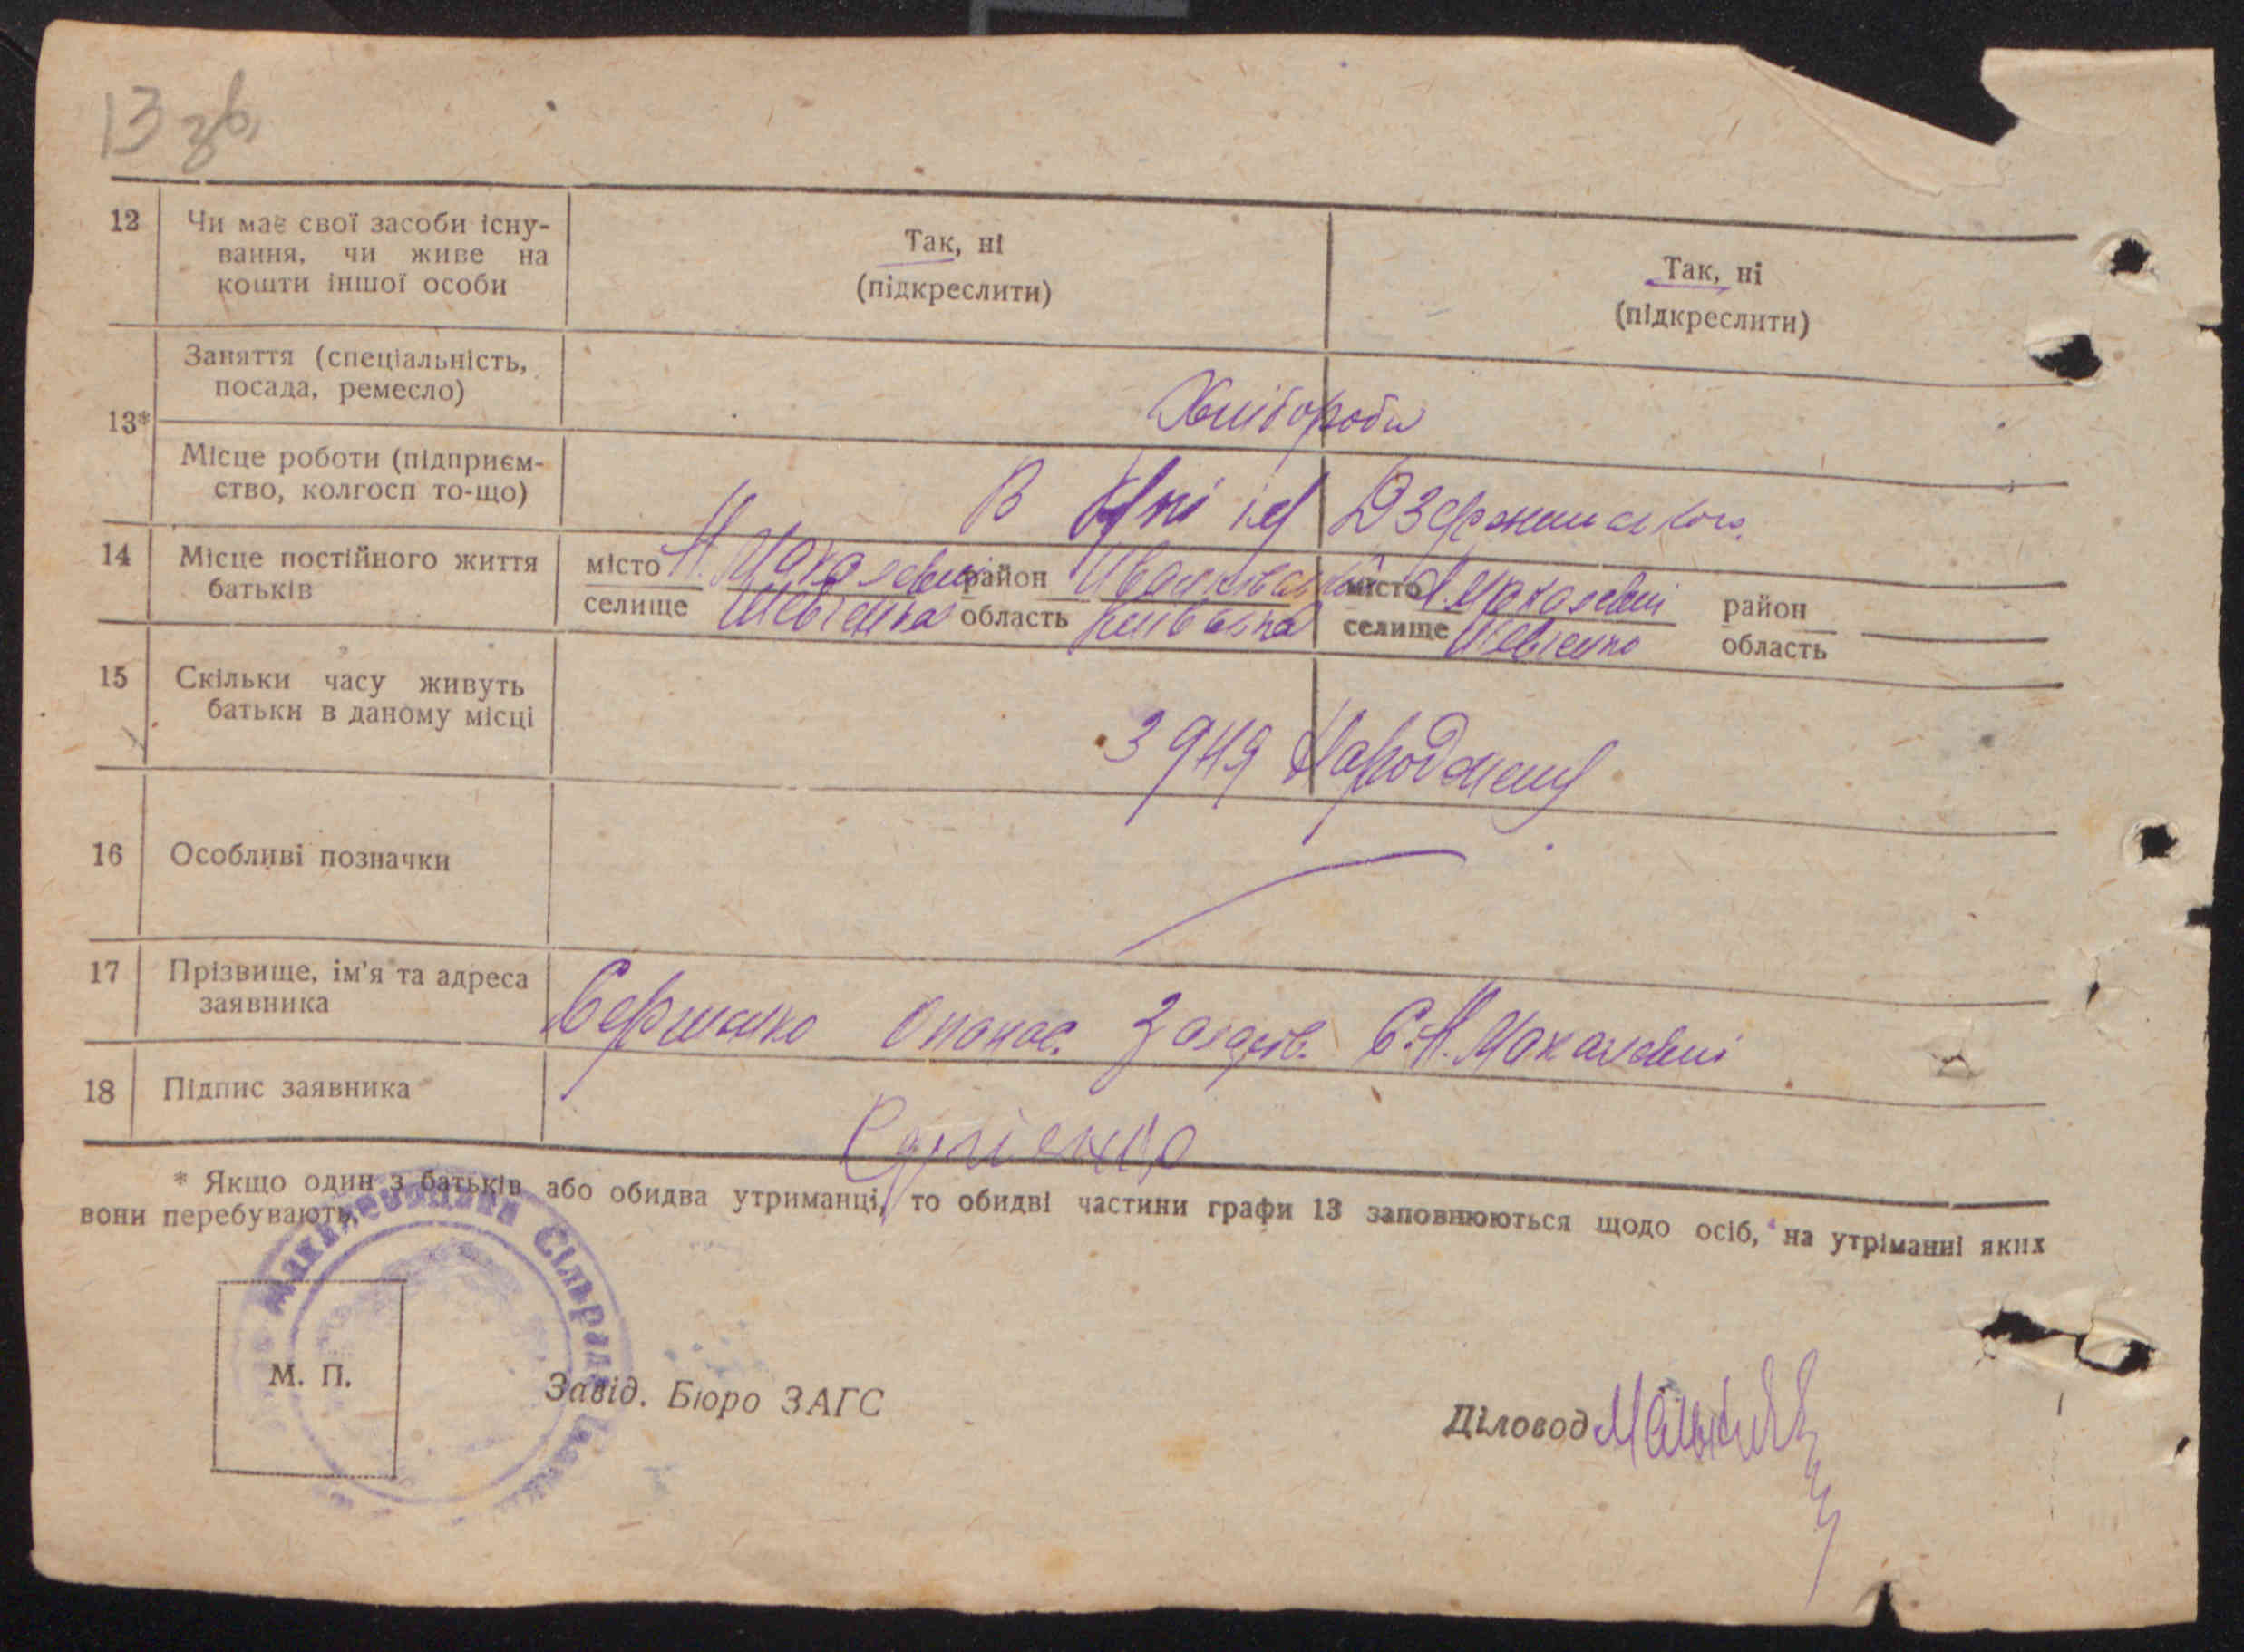 13 зв.
12 Чи має свої засоби існу-
вання, чи живе на
кошти іншої особи
Так, ні
(підкреслити)
Так, ні
(підкреслити)
13*
Заняття (спеціальність,
посада, ремесло)
Хлібороби
Місце роботи (підприєм-
ство, колгосп то-що)
В к-пі ім Дзержинського
14 Місце постійного життя
батьків
місто Н. Макалевичі район
селище Шевченка область Київська
місто Н. Макалевичі район
селище Шевченко область
15 Скільки часу живуть
батьки в даному місці
З дня народження
16 Особливі позначки
17 Прізвище, ім'я та адреса
заявника
Сергиенко Опанас С. Н. Макалевичі
18 Підпис заявника
Сергіенко
* Якщо один з батьків або обидва утриманці, то обидві частини графи 13 заповнюються щодо осіб, на утріманні яких
вони перебувають.
Сільрада
М. П.
Завід. Бюро ЗАГС
Діловод